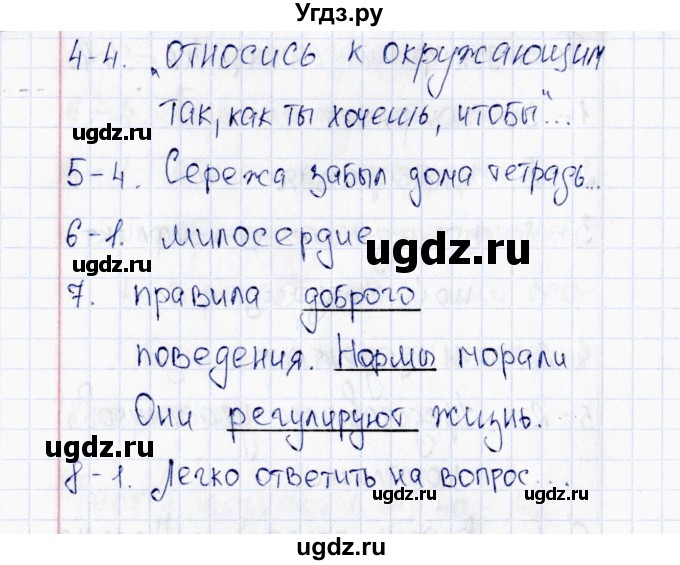 Угдз.ру
4-4. „Относись к окружающим
так, как ты хочешь, чтобы"...
ugdz.ru ugdz.ru
5-4. Сережа забыл дома тетрадь...
6-1. милосердие
ugdz.ru
ugdz.ru ugdz.ru
7. правила доброго
поведения. Нормы морали
Они регулируют жизнь.
ugdz.ru ugdz.ru
8-1. Легко ответить на вопрос...
ugdz.ru ugdz.ru
ugdz.ru